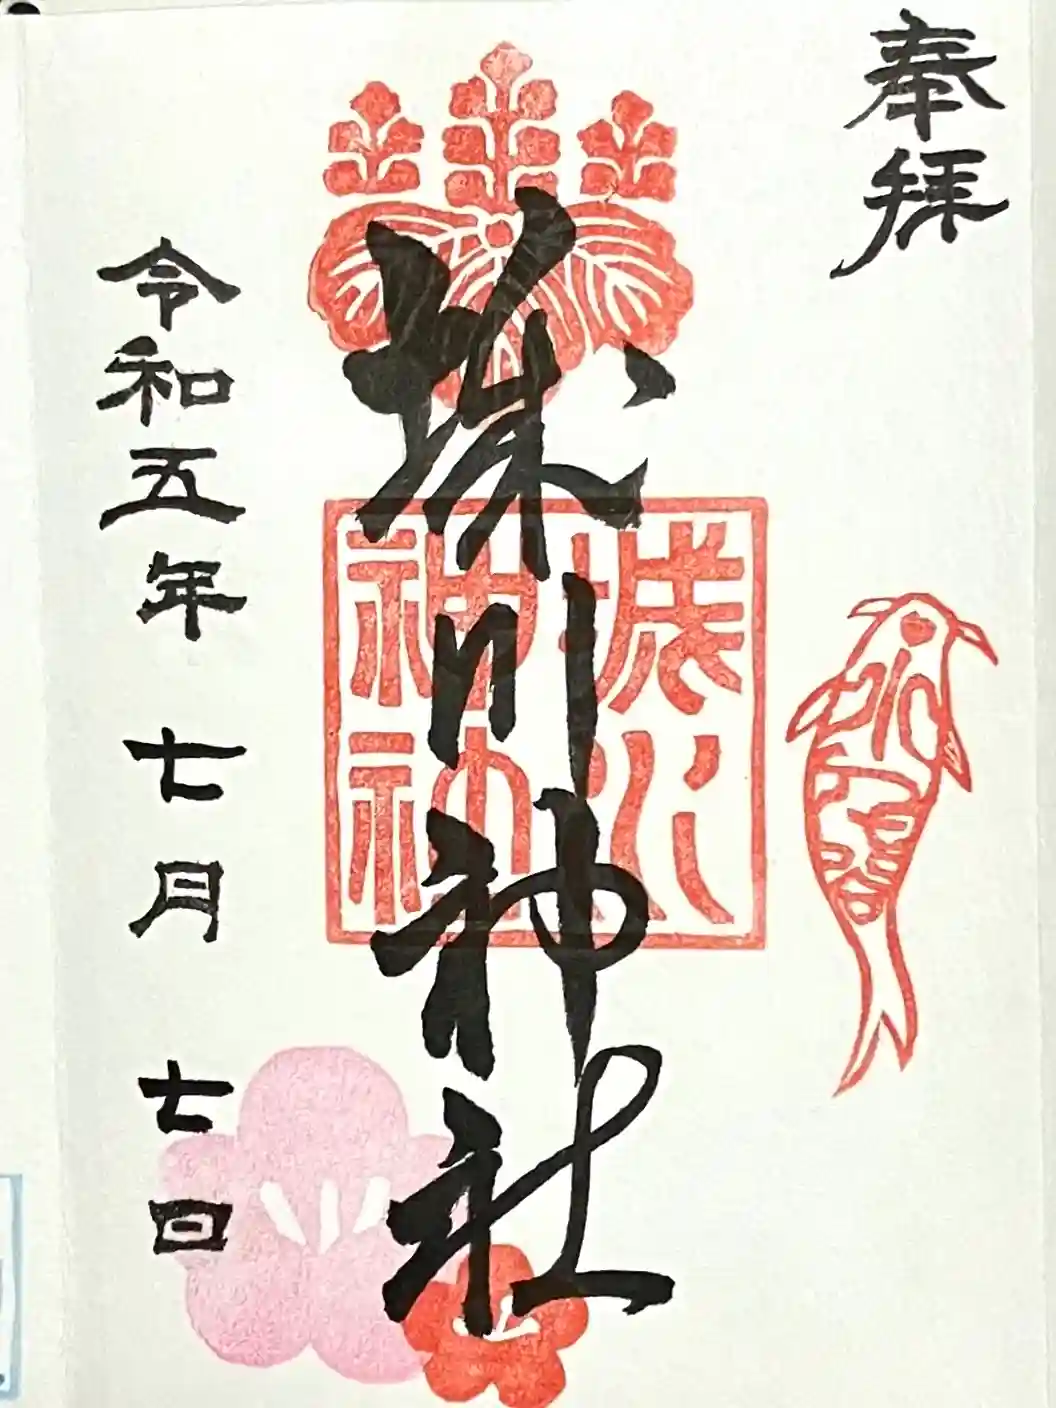 奉拝
城川神社
城川
神社
令和五年 七月 七日